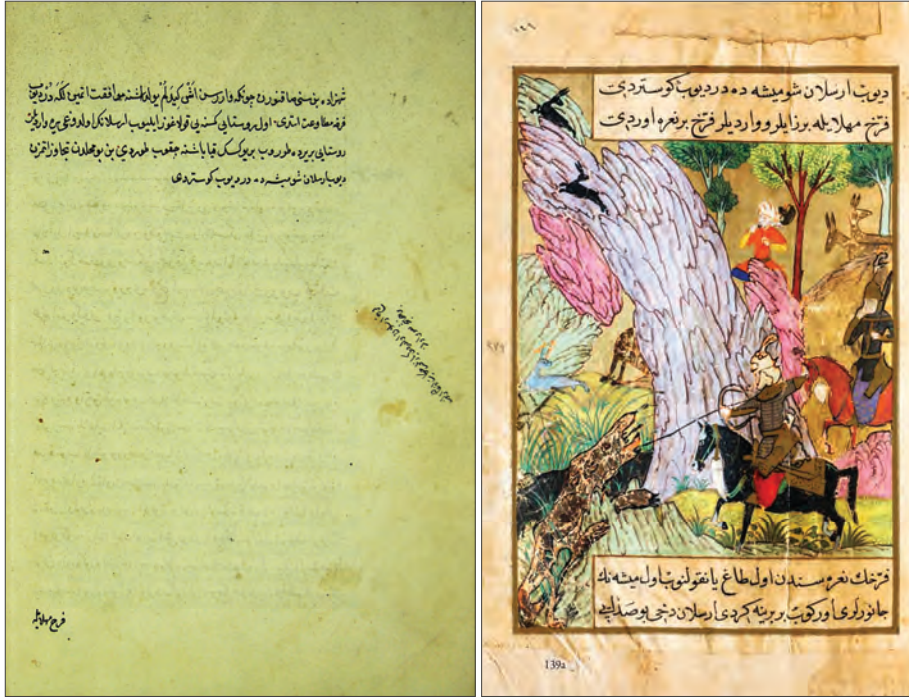 شهزاده بن سنی چونکه واررسن یولداشه موافقت اتمین دیوب
فرخه مطاوعت استری اول روستایی کسنه بی قولاغوز ایلیوب ارسلانکز اولدوغی یره
روستایی بر یرده طوروب بر یوکسک قیا باشنه چقوب طوردی بن بو محلدن تجاوز اتمزن
دیوب ارسلان شومیشه ده در دیوب کوستردی
فرخ مهلایله
دیوب ارسلان شومیشه ده در دیوب کوستردی
فرّخ مهلایله بوز ایلرو واردیلر فرّخ بر نعره اوردی
فرّخك نعره سندن اول طاغ یانقولنوب اول میشه نك
جانورلری اورکوب بر برینه کردی ارسلان دخی بو صدایی
139a